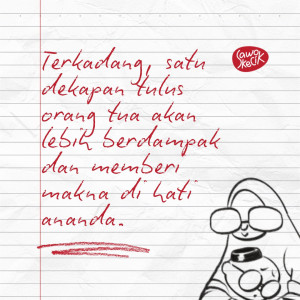 Terkadang, satu
dekapan tulus
orang tua akan
lebih berdampak
dan memberi
makna di hati
ananda.
Sawo
Kecik